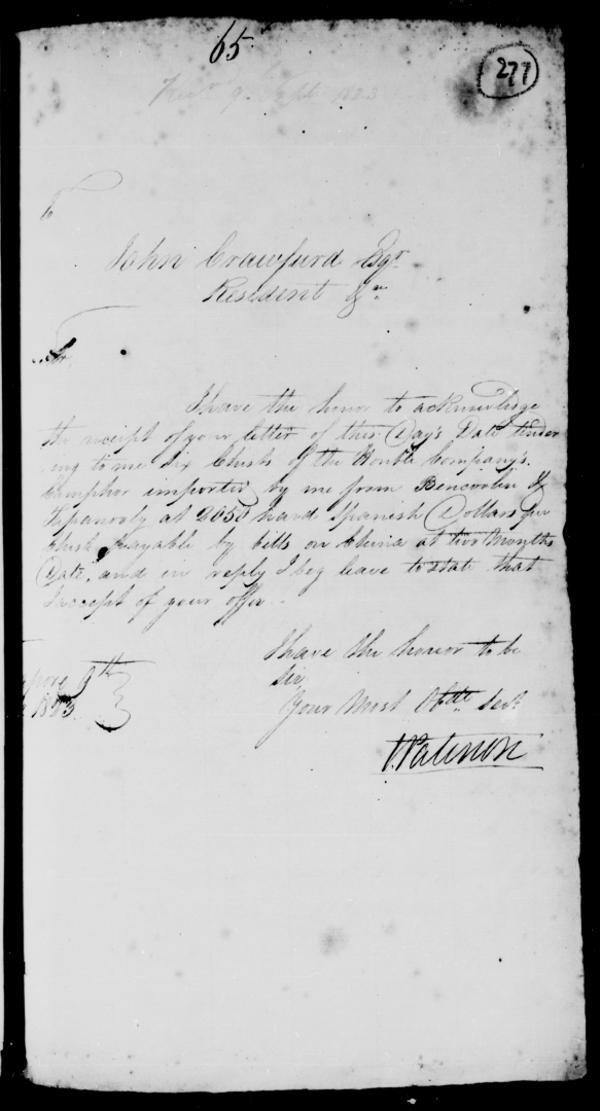 65
277
9 Sept 1823
To
John Crawfurd Esqr
Resident &ca
Sir
I have the honor to acknowledge
the receipt of your letter of this Day's Date tender
ing to me six Chests of the Honble Company's
Camphor imported by me from Bencoolen &
Tapanooly at 2050 hard Spanish Dollars per
Chest payable by bills on China at two Months
Date, and in reply I beg leave to state that
I accept of your offer.
I have the honor to be
Sir
Your Most Obdt Servt
pore 9th
1823